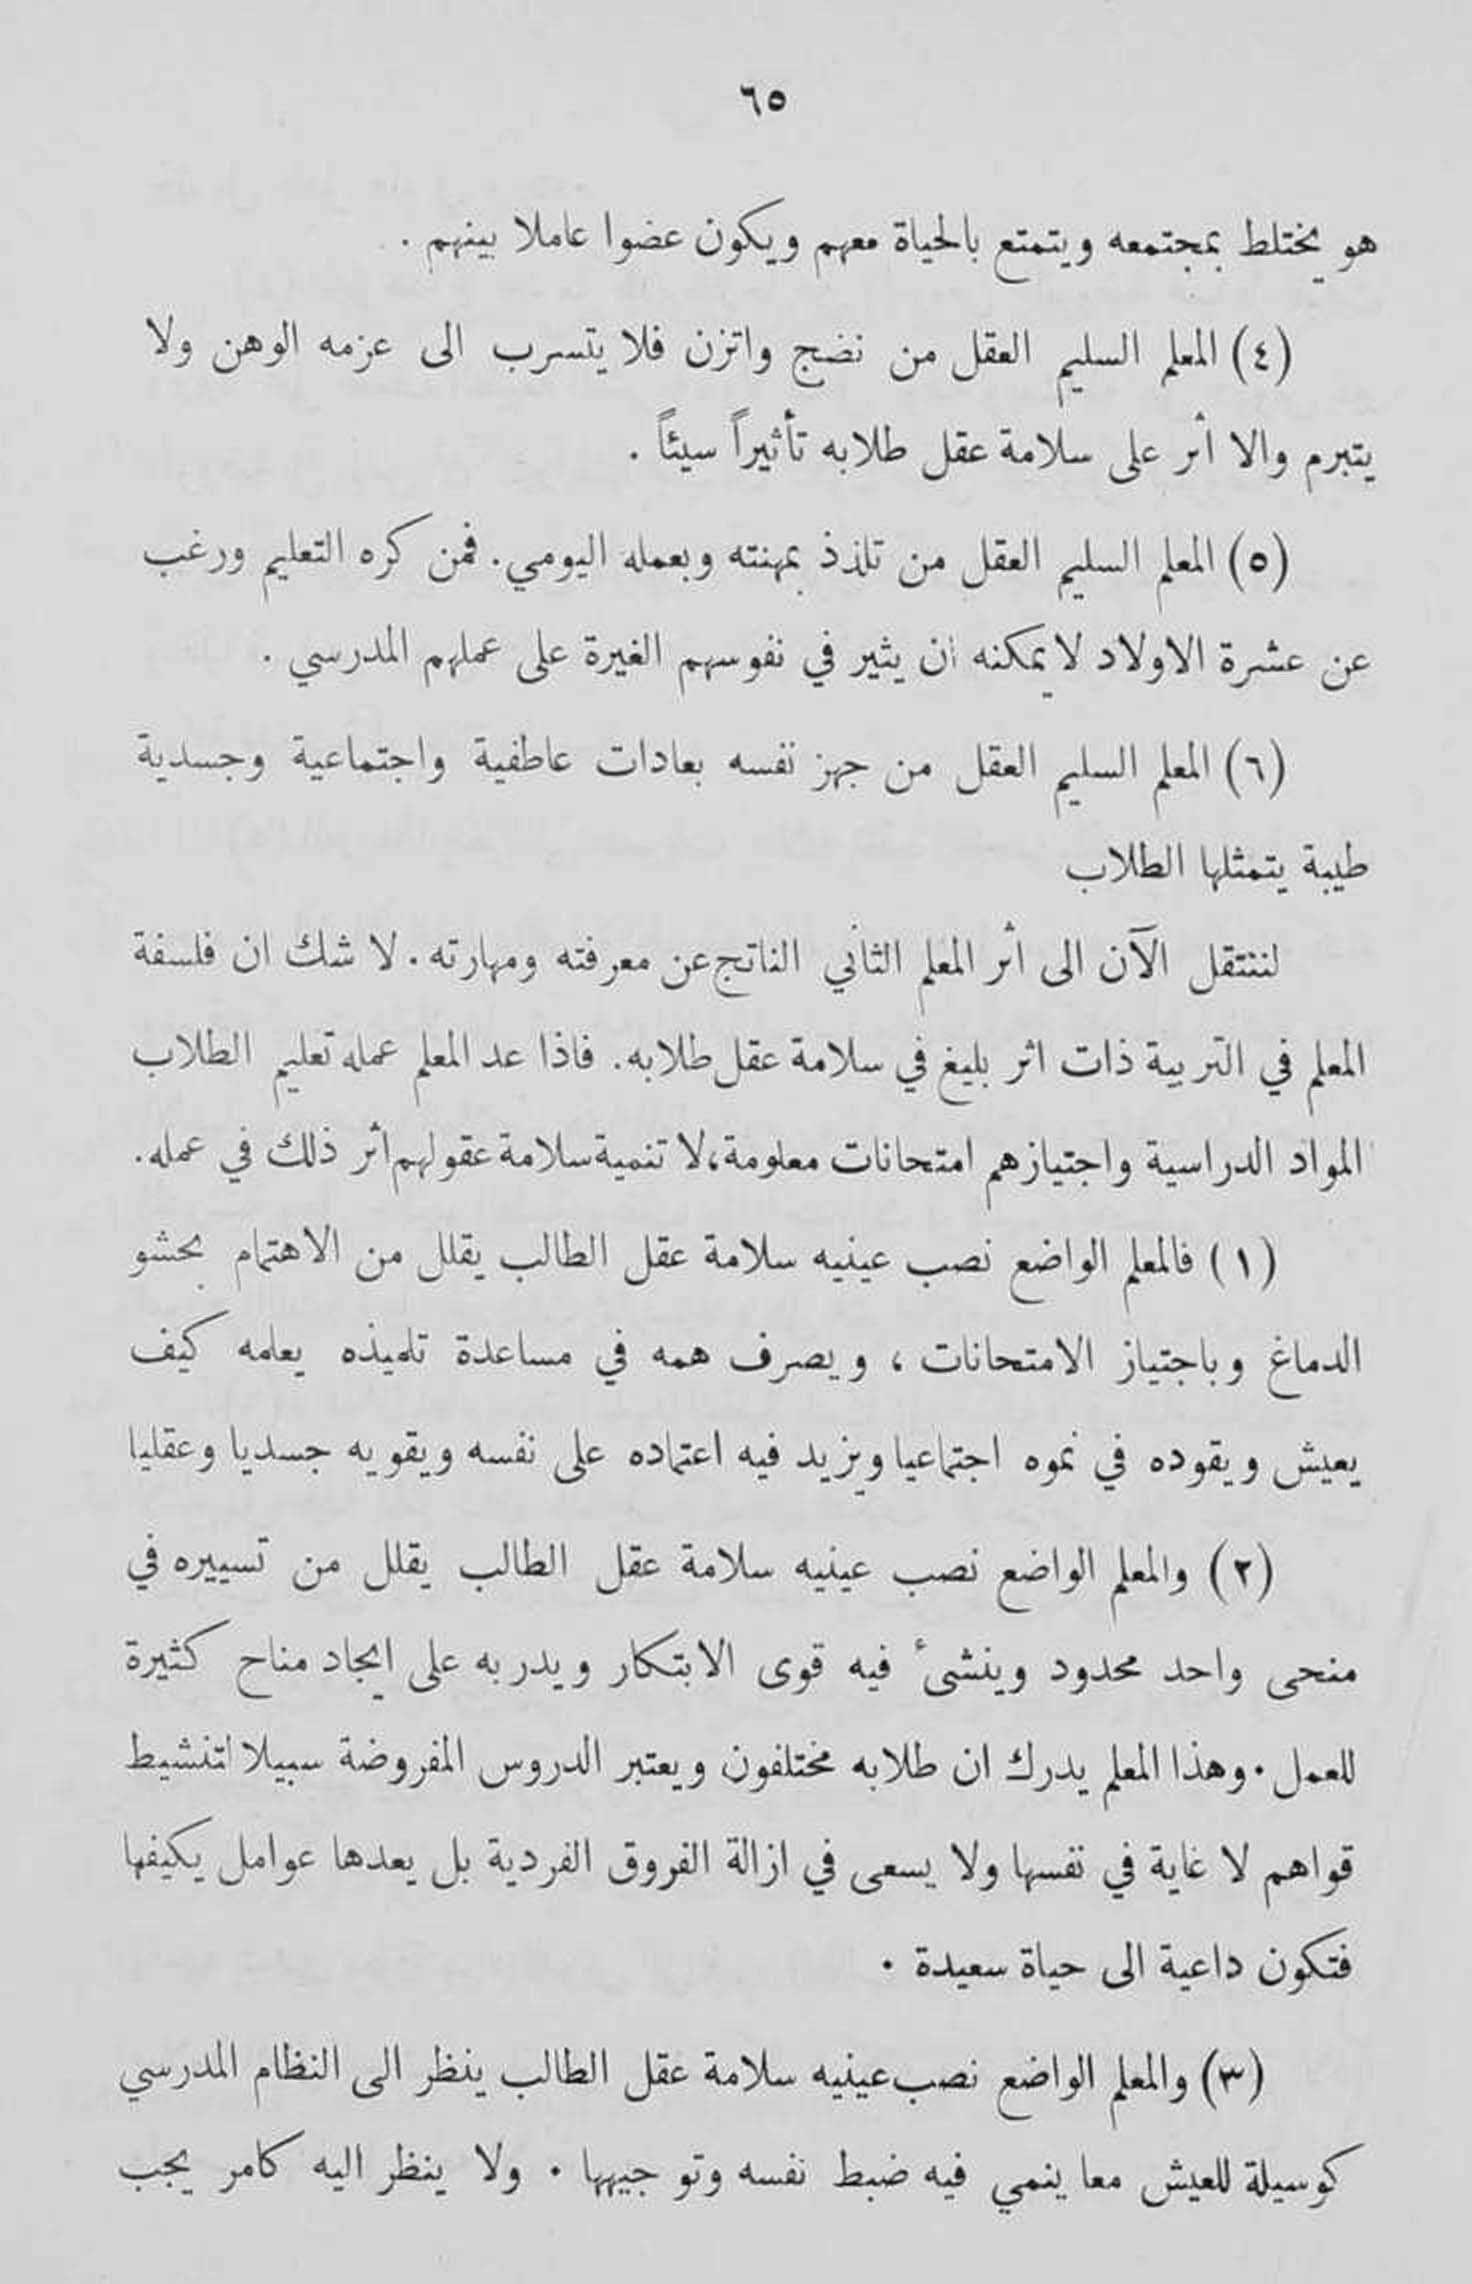 ٦٥
هو يختلط بمجتمعه ويتمتع بالحياة معهم ويكون عضوا عاملا بينهم .
(٤) المعلم السليم العقل من نضج واتزن فلا يتسرب الى عزمه الوهن ولا
يتبرم والا أثر على سلامة عقل طلابه تأثيراً سيئاً .
(٥) المعلم السليم العقل من تلذذ بمهنته وبعمله اليومي. فمن كره التعليم ورغب
عن عشرة الاولاد لا يمكنه أن يثير في نفوسهم الغيرة على عملهم المدرسي .
(٦) المعلم السليم العقل من جهز نفسه بعادات عاطفية واجتماعية وجسدية
طيبة يتمثلها الطلاب
لننتقل الآن الى أثر المعلم الثاني الناتج عن معرفته ومهارته. لا شك ان فلسفة
المعلم في التربية ذات اثر بليغ في سلامة عقل طلابه. فاذا عد المعلم عمله تعليم الطلاب
المواد الدراسية واجتيازهم امتحانات معلومة، لا تنمية سلامة عقولهم أثر ذلك في عمله.
(١) فالمعلم الواضع نصب عينيه سلامة عقل الطالب يقلل من الاهتمام بحشو
الدماغ وباجتياز الامتحانات ، ويصرف همه في مساعدة تلميذه يعلمه كيف
يعيش ويقوده في نموه اجتماعيا ويزيد فيه اعتماده على نفسه ويقويه جسديا وعقليا
(٢) والمعلم الواضع نصب عينيه سلامة عقل الطالب يقلل من تسييره في
منحى واحد محدود وينشئ فيه قوى الابتكار ويدربه على ايجاد مناح كثيرة
للعمل. وهذا المعلم يدرك ان طلابه مختلفون ويعتبر الدروس المفروضة سبيلا لتنشيط
قواهم لا غاية في نفسها ولا يسعى في ازالة الفروق الفردية بل يعدها عوامل يكيفها
فتكون داعية الى حياة سعيدة .
(٣) والمعلم الواضع نصب عينيه سلامة عقل الطالب ينظر الى النظام المدرسي
كوسيلة للعيش معا ينمي فيه ضبط نفسه وتوجيهها . ولا ينظر اليه كامر يجب